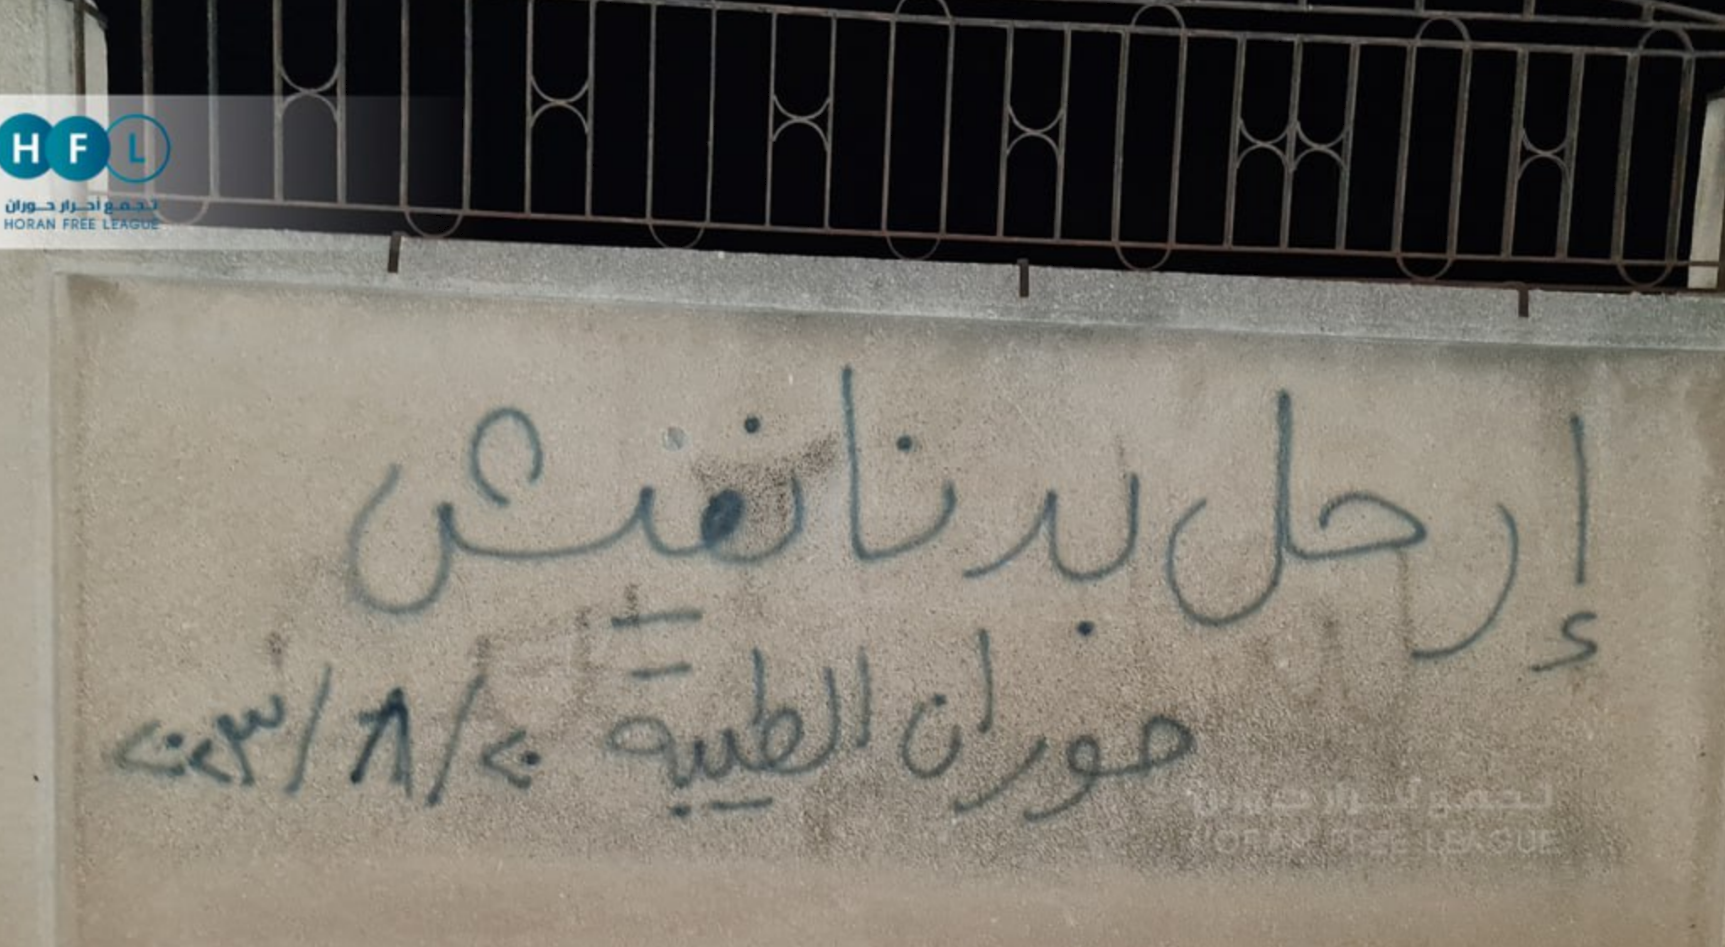 HFL
تجمع أحرار حوران
HORAN FREE LEAGUE
إرحل بدنا نعيش
حوران الطيبة ٢٠/٨/٢٠٢٣
تجمع أحرار حوران
HORAN FREE LEAGUE